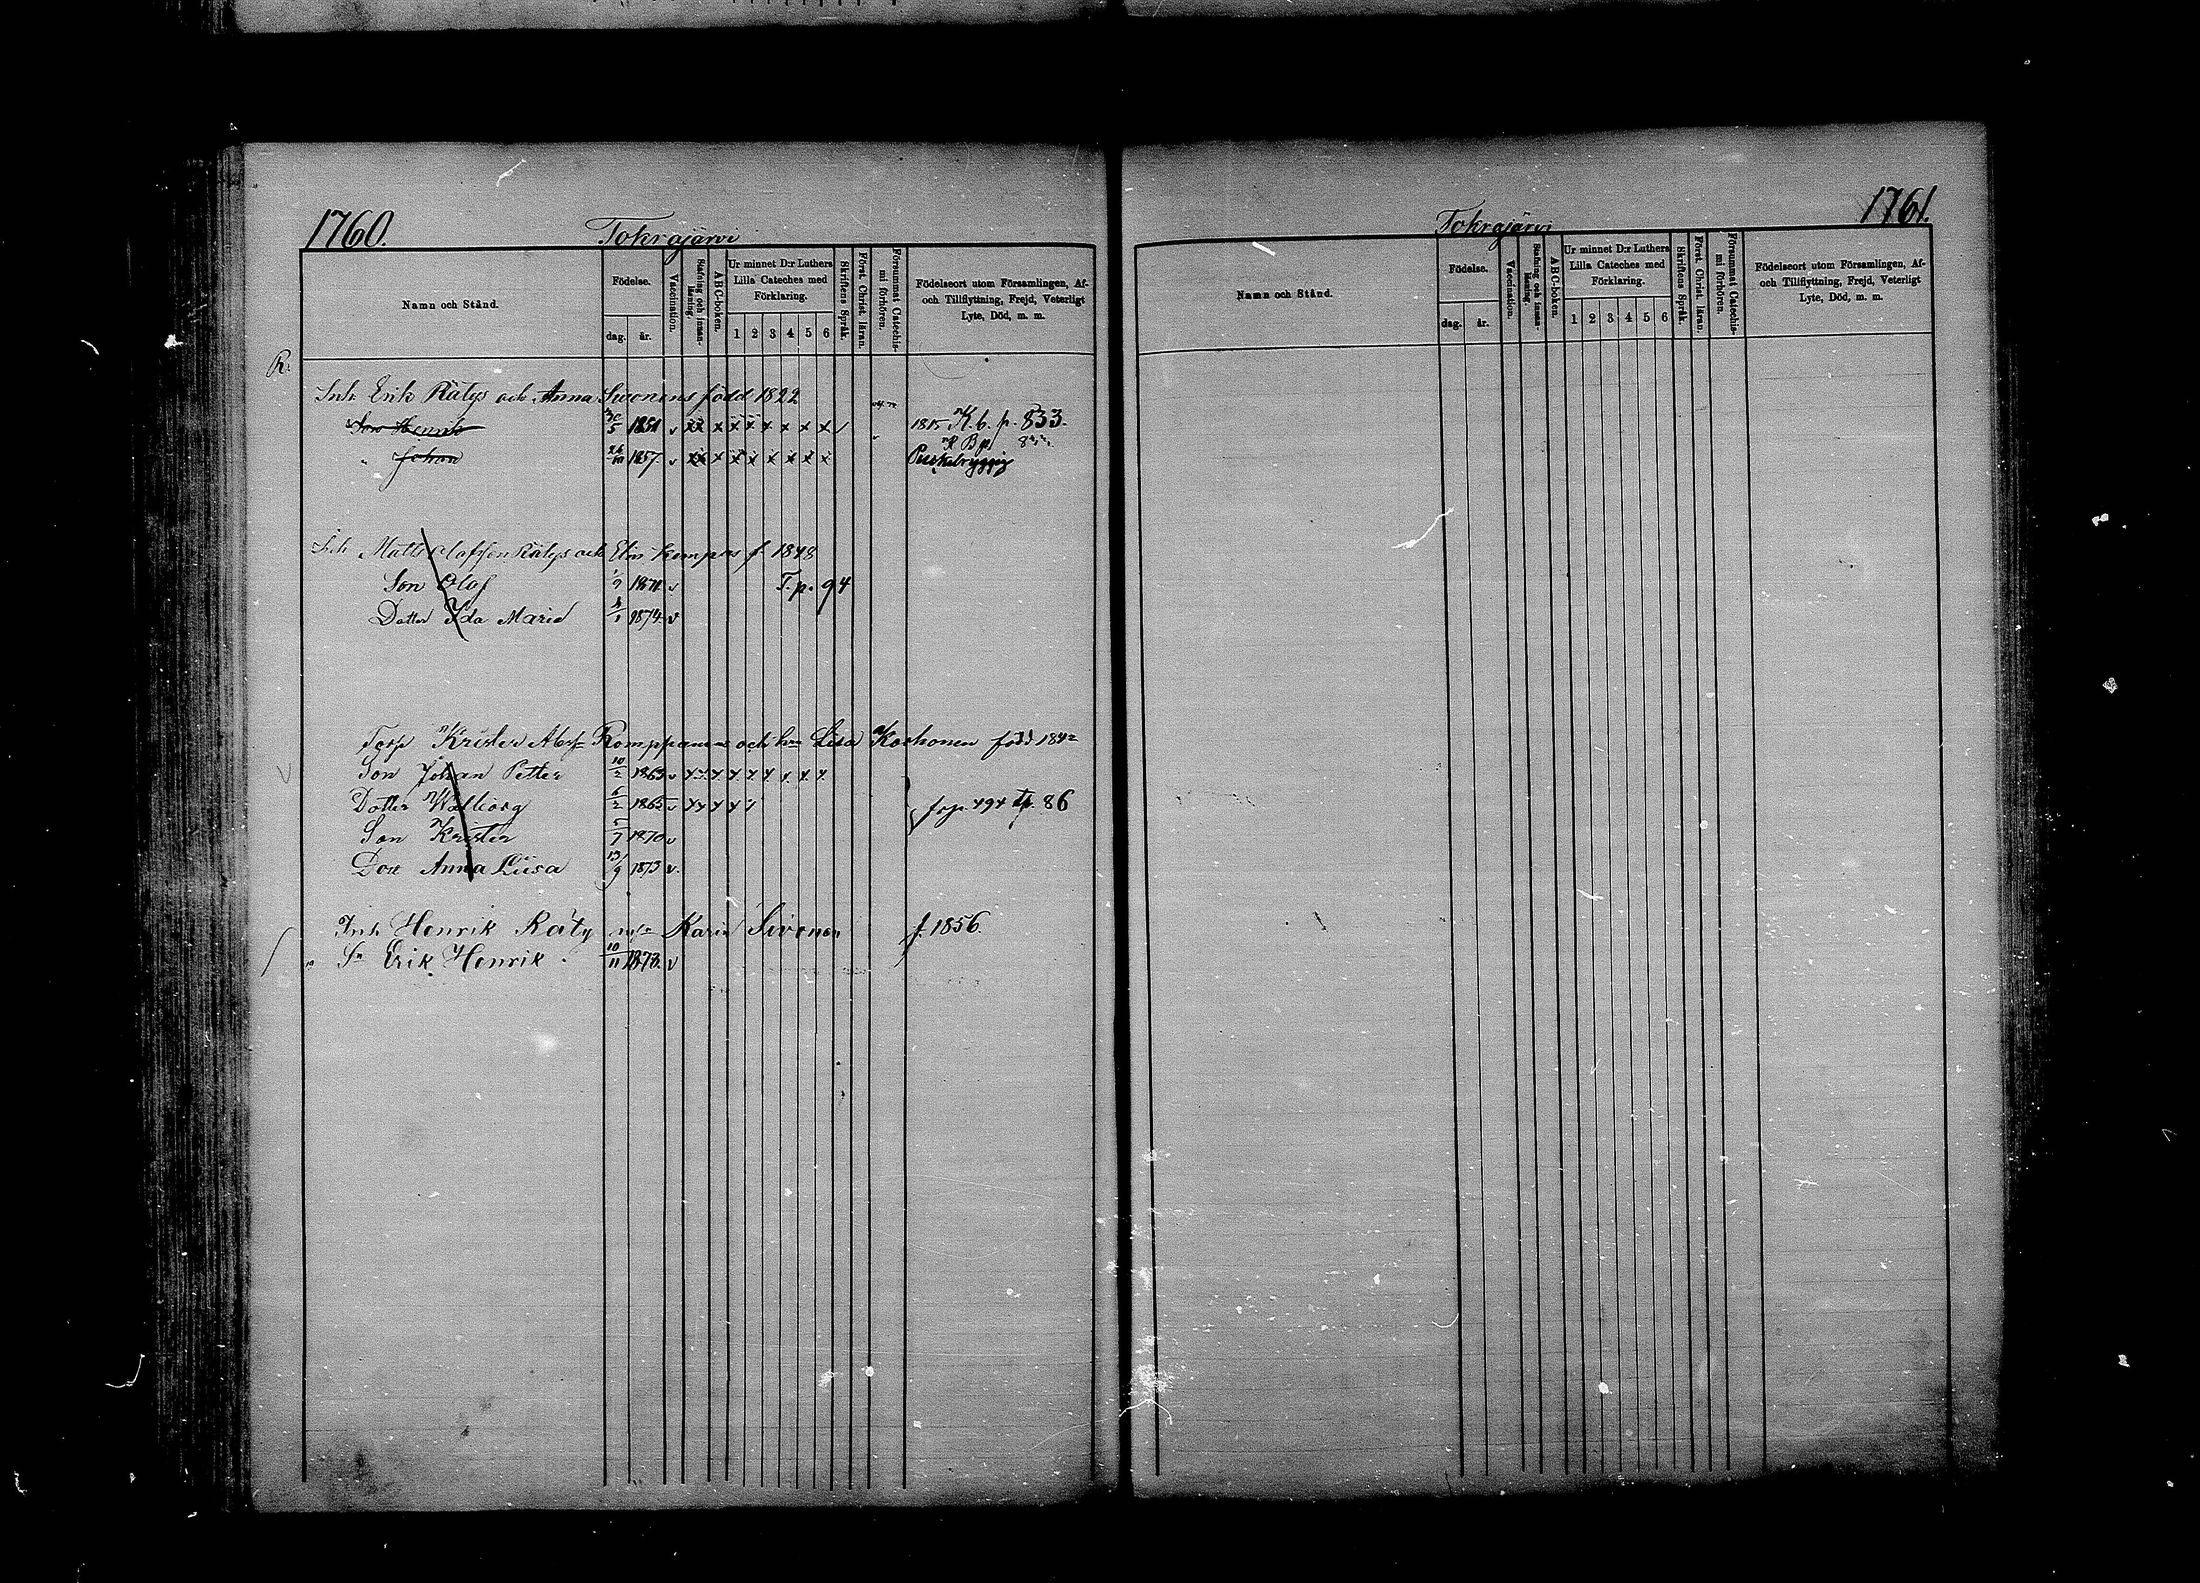 1760.
Tokrajärvi
Namn och Stånd.
Födelse.
dag. år.
Vaccination.
Stafning och innanläsning.
ABC-boken.
Ur minnet D:r Luthers Lilla Cateches med Förklaring.
1 2 3 4 5 6
Skriftens Språk.
Först. Christ. läran.
Försummat Catechismi förhören.
Födelseort utom Församlingen, Af- och Tillflyttning, Frejd, Veterligt Lyte, Död, m. m.
R.
Inh Erik Rätys och Anna Sivonens född 1822
Son Henrik 5 1851 v x x x x x x x 1815 K. b. p. 833.
" Johan 1857 v x x x x x x x
Inh Matts Olofsson Rätys och Elin Kempas f. 1848
Son Olof 1/9 1871 v T. p. 94
Dotter Ida Maria 1874 v
Torp Krister Romppanens och Lisa Korhonen född 1842
Son Johan Petter 10/2 1863 v
Dotter Walborg 6/2 1865 v p. 494 Tp. 86
Son Krister 5/7 1870 v
Dott Anna Liisa 13/9 1873 v.
Inh Henrik Räty Karin Sivonen f. 1856.
" Sn Erik Henrik 10/11 1878. v
1761.
Tokrajärvi
Namn och Stånd.
Födelse.
dag. år.
Vaccination.
Stafning och innanläsning.
ABC-boken.
Ur minnet D:r Luthers Lilla Cateches med Förklaring.
1 2 3 4 5 6
Skriftens Språk.
Först. Christ. läran.
Försummat Catechismi förhören.
Födelseort utom Församlingen, Af- och Tillflyttning, Frejd, Veterligt Lyte, Död, m. m.